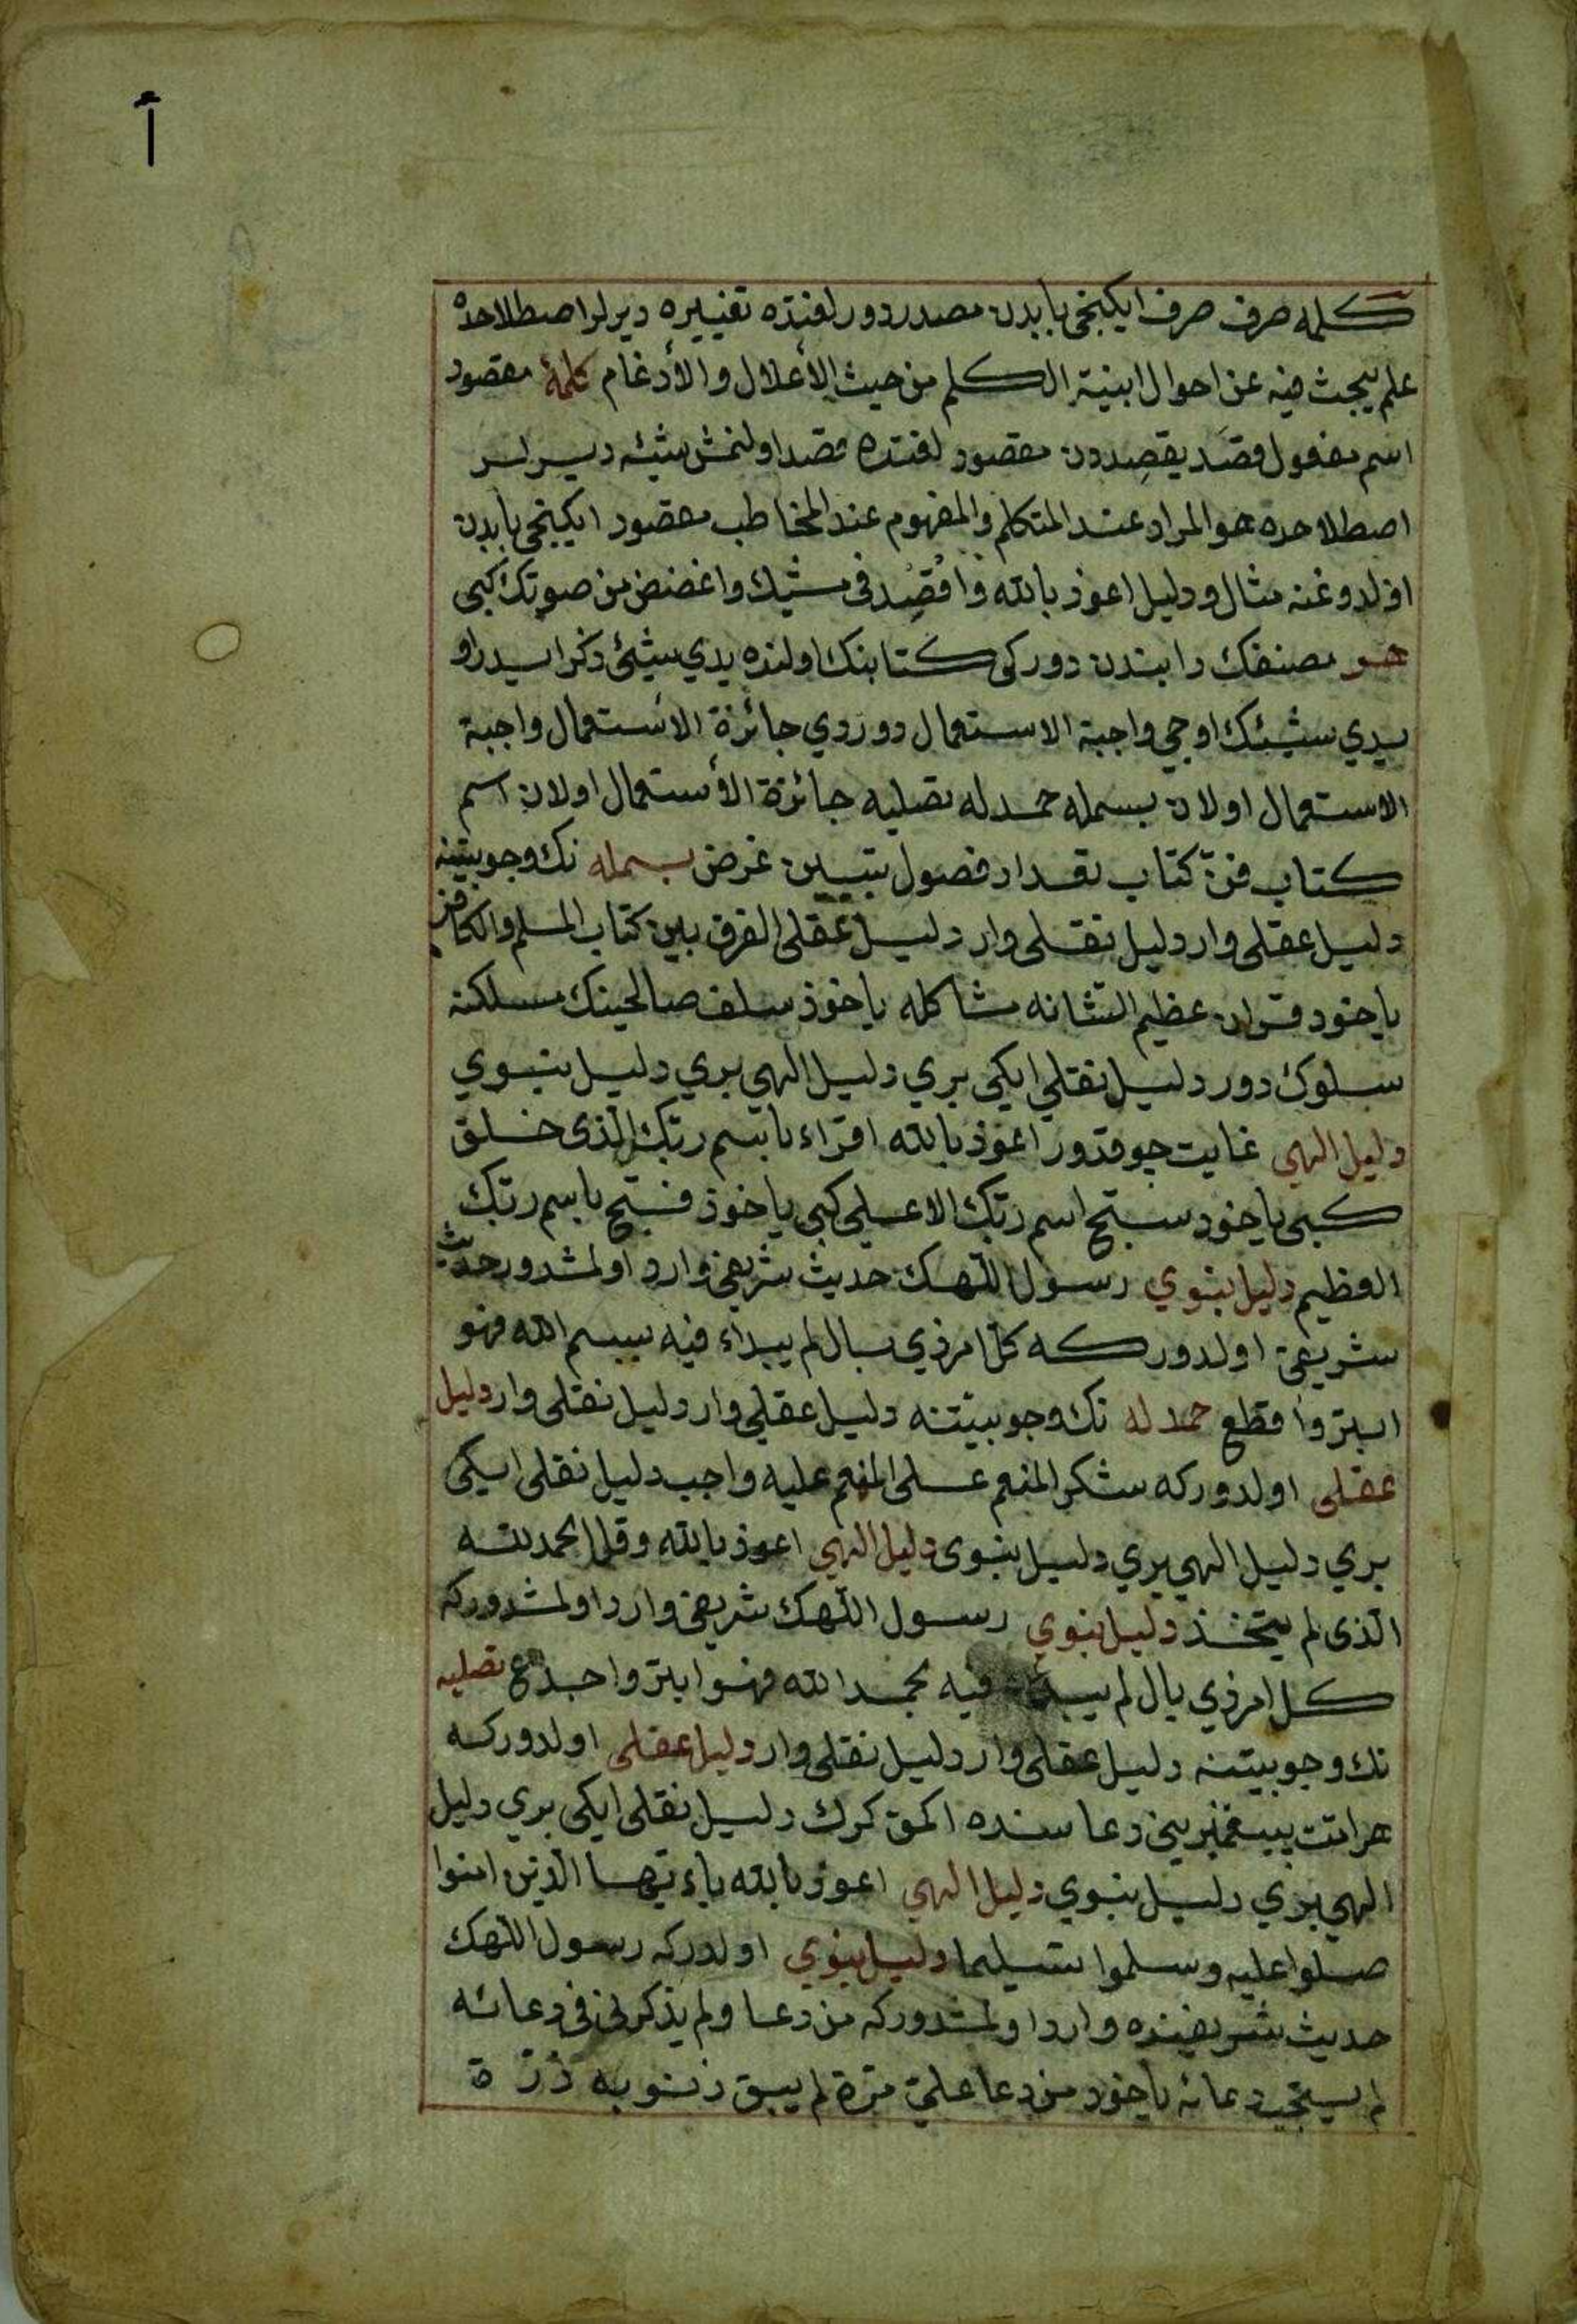 آ
كلمه صرف صرف ايكنجى بابدن مصدر دور لغتده تغييره ديرلر اصطلاحده
علم يبحث فيه عن احوال ابنية الكلم من حيث الأعلال والأدغام كلمهٔ مقصود
اسم مفعول قصَد يقصِددن مقصود لغتده قصد اولنمش شيئه ديرلر
اصطلاحده هو المراد عند المتكلم والمفهوم عند المخاطب مقصود ايكنجى بابدن
اولدوغنه مثال ودليل اعوذ بالله وَاقْصِد فى مشيك واغضض من صوتك كبى
هر مصنفك دابندن دور كى كتابنك اولنده يدي شيئ ذكر ايدر او
يدي شيئك اوچي واجبة الاستعمال دوردي جائزة الاستعمال واجبة
الاستعمال اولان بسمله حمدله تصليه جائزة الأستعمال اولان اسم
كتاب فنّ كتاب تعداد فصول تبيين غرض بسمله نك وجوبيتنه
دليل عقلى وار دليل نقلى وار دليل عقلى الفرق بين كتاب المسلم والكافر
ياخود قران عظيم الشانه مشاكله ياخوذ سلف صالحينك مسلكنه
سلوك دور دليل نقلي ايكى بري دليل الهي بري دليل نبوي
دليل الهي غايت چوقدور اعوذ بالله اقراء باسم ربّك الّذى خلق
كبى ياخود سبّح اسم ربّك الاعلى كبى ياخوذ فسبّح باسم ربّك
العظيم دليل نبوي رسول اللّهك حديث شريفى وارد اولمشدور حديث
شريفى اولدور كه كلّ امر ذي بال لم يبداء فيه ببسم الله فهو
ابتر واقطع حمدله نك وجوبيّتنه دليل عقلي وار دليل نقلى وار دليل
عقلى اولدور كه شكر المنعم على المنعم عليه واجب دليل نقلى ايكى
بري دليل الهي بري دليل نبوى دليل الهي اعوذ بالله وقل الحمد لله
الّذى لم يتّخذ دليل نبوي رسول اللّهك شريفى وارد اولمشدور كه
كل امر ذي بال لم يبداء فيه بحمد الله فهو ابتر واجدع تصليه
نك وجوبيتنه دليل عقلى وار دليل نقلى وار دليل عقلى اولدور كه
هر امّت پيغمبريني دعا سنده اكمق كرك دليل نقلى ايكى بري دليل
الهي بري دليل نبوي دليل الهي اعوذ بالله ياءيّها الّذين امنوا
صلوا عليه وسلموا تسليما دليل نبوي اولدركه رسول اللّهك
حديث شريفنده وارد اولمشدور كه من دعا ولم يذكرنى فى دعائه
لم يستجب دعائه ياخود من دعا عليّ مرّة لم يبق ذنوبه ذرّة